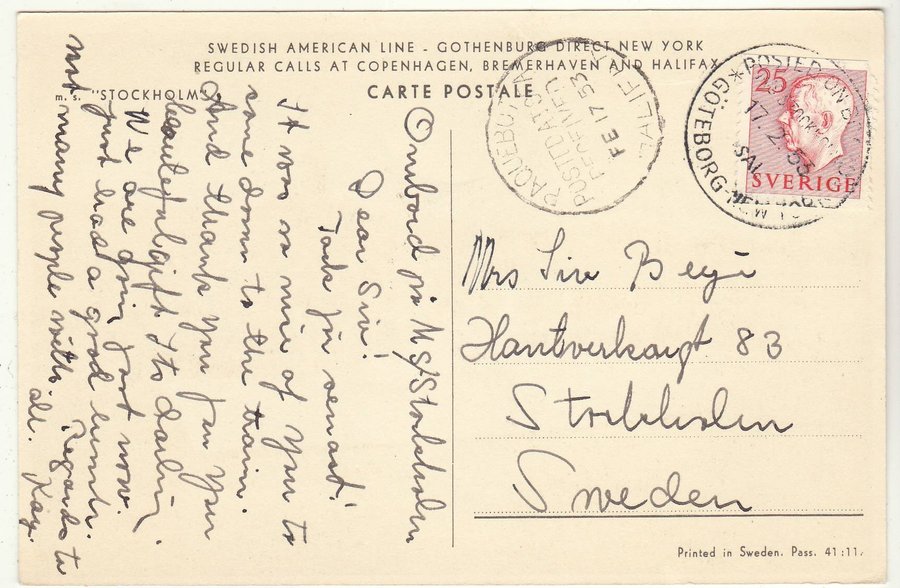 SWEDISH AMERICAN LINE - GOTHENBURG DIRECT NEW YORK
REGULAR CALLS AT COPENHAGEN, BREMERHAVEN AND HALIFAX
m. s. "STOCKHOLM"
CARTE POSTALE
PAQUEBOT
POSTED AT SEA
FE 17 53
25
SVERIGE
17.2.53
GÖTEBORG-NEW YORK
Ombord på M/S Stockholm
Dear Siv!
Tack för senast!
It was so nice of you to
come down to the train.
And thank you for your
beautiful gift to
We are going fast now.
just had a good lunch.
most many people with. Regards to
all. Kay.
Mrs Siv
83
Stockholm
Sweden
Printed in Sweden. Pass. 41:11.